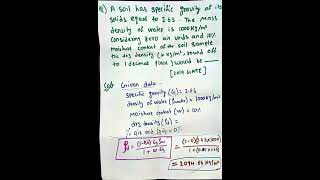 Q) A soil has specific gravity of its
solids equal to 2.65. The mass
density of water is 1000 kg/m³
considering zero air voids and 10%
moisture content of the soil sample
the dry density (in kg/m³, round off
to 1 decimal place) would be ___
[2019 GATE]
Sol Given data:-
specific gravity (G) = 2.65
density of water (ρwater) = 1000 kg/m³
moisture content (w) = 10%
dry density (ρd) =
% air void (ηa) = 0%
ρd = (1-ηa) G ρw / 1 + wG
= (1-0) 2.65 x 1000 / 1 + (0.1 x 2.65)
= 2094.86 kg/m³